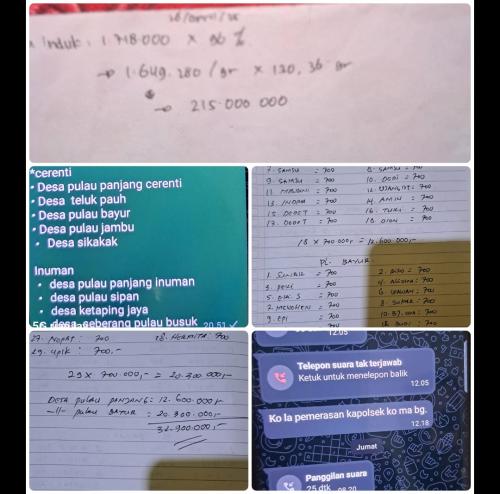 26/april/25
Induk : 1.718.000 x 96 %
→ 1.649.280 / gr x 130,36 gr
→ 215.000.000
*cerenti
• Desa pulau panjang cerenti
• Desa teluk pauh
• Desa pulau bayur
• Desa pulau jambu
• Desa sikakak
Inuman
• desa pulau panjang inuman
• desa pulau sipan
• desa ketaping jaya
desa seberang pulau busuk
20.51
7. SAMSU = 700 8. SAMSU = 700
9. SAMSU = 700 10. DODI = 700
11. = 700 12. = 700
13. INDRA = 700 14. AMIN = 700
15. DODET = 700 16. TUKI = 700
17. DODET = 700 18. DION = 700
18 x 700.000,- = 12.600.000,-
PL. BAYUR
1. = 700 2. = 700
3. = 700 4. = 700
5. EDI. S = 700 6. = 700
7. = 700 8. = 700
9. EPI = 700 10. = 700
27. NOPRI : 700 28. HERMITA 700
29. UPIK : 700,-
29 x 700.000,- = 20.300.000,-
DESA PULAU PANJANG : 12.600.000,-
-11- pulau BAYUR = 20.300.000,-
32.900.000,-
12.05
Telepon suara tak terjawab
Ketuk untuk menelepon balik
12.05
Ko la pemerasan kapolsek ko ma bg.
12.18
Jumat
Panggilan suara
25 dtk 08.20